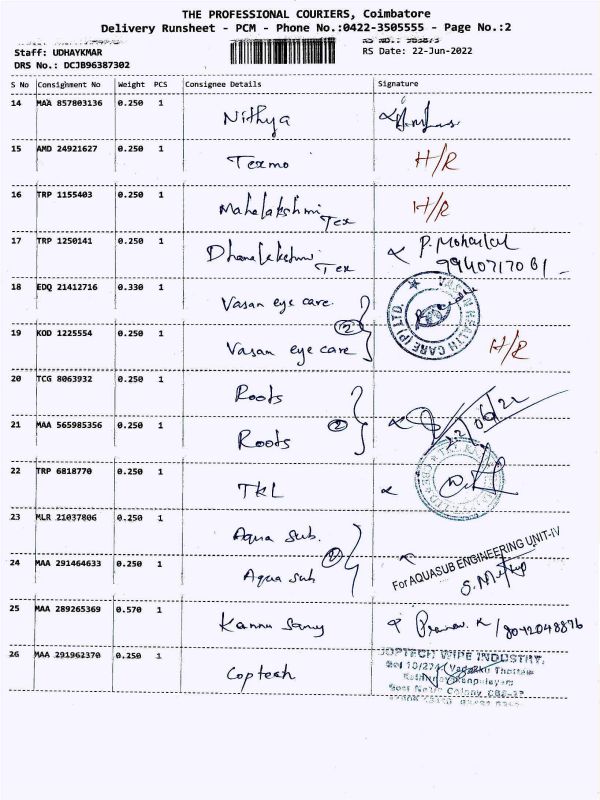 THE PROFESSIONAL COURIERS, Coimbatore
Delivery Runsheet - PCM - Phone No.:0422-3505555 - Page No.:2
Staff: UDHAYKMAR
RS Date: 22-Jun-2022
DRS No.: DCJB96387302
S No Consignment No Weight PCS Consignee Details Signature
14 MAA 857803136 0.250 1 Nithya
15 AMD 24921627 0.250 1 Texmo H/R
16 TRP 1155403 0.250 1 Mahalakshmi Tex H/R
17 TRP 1250141 0.250 1 Dhanalakshmi Tex P. Mohanlal
18 EDQ 21412716 0.330 1 Vasan eye care.
VASAN HEALTH CARE (P) LTD.
2
19 KOD 1225554 0.250 1 Vasan eye care H/R
20 TCG 8063932 0.250 1 Roots
22/06/22
2
21 MAA 565985356 0.250 1 Roots
22 TRP 6818770 0.250 1 TKL
23 MLR 21037806 0.250 1 Aqua Sub.
For AQUASUB ENGINEERING UNIT-IV
24 MAA 291464633 0.250 1 Aqua Sub
25 MAA 289265369 0.570 1 Kannu Samy
26 MAA 291962370 0.250 1 Coptech
COPTECH WIPE INDUSTRY,